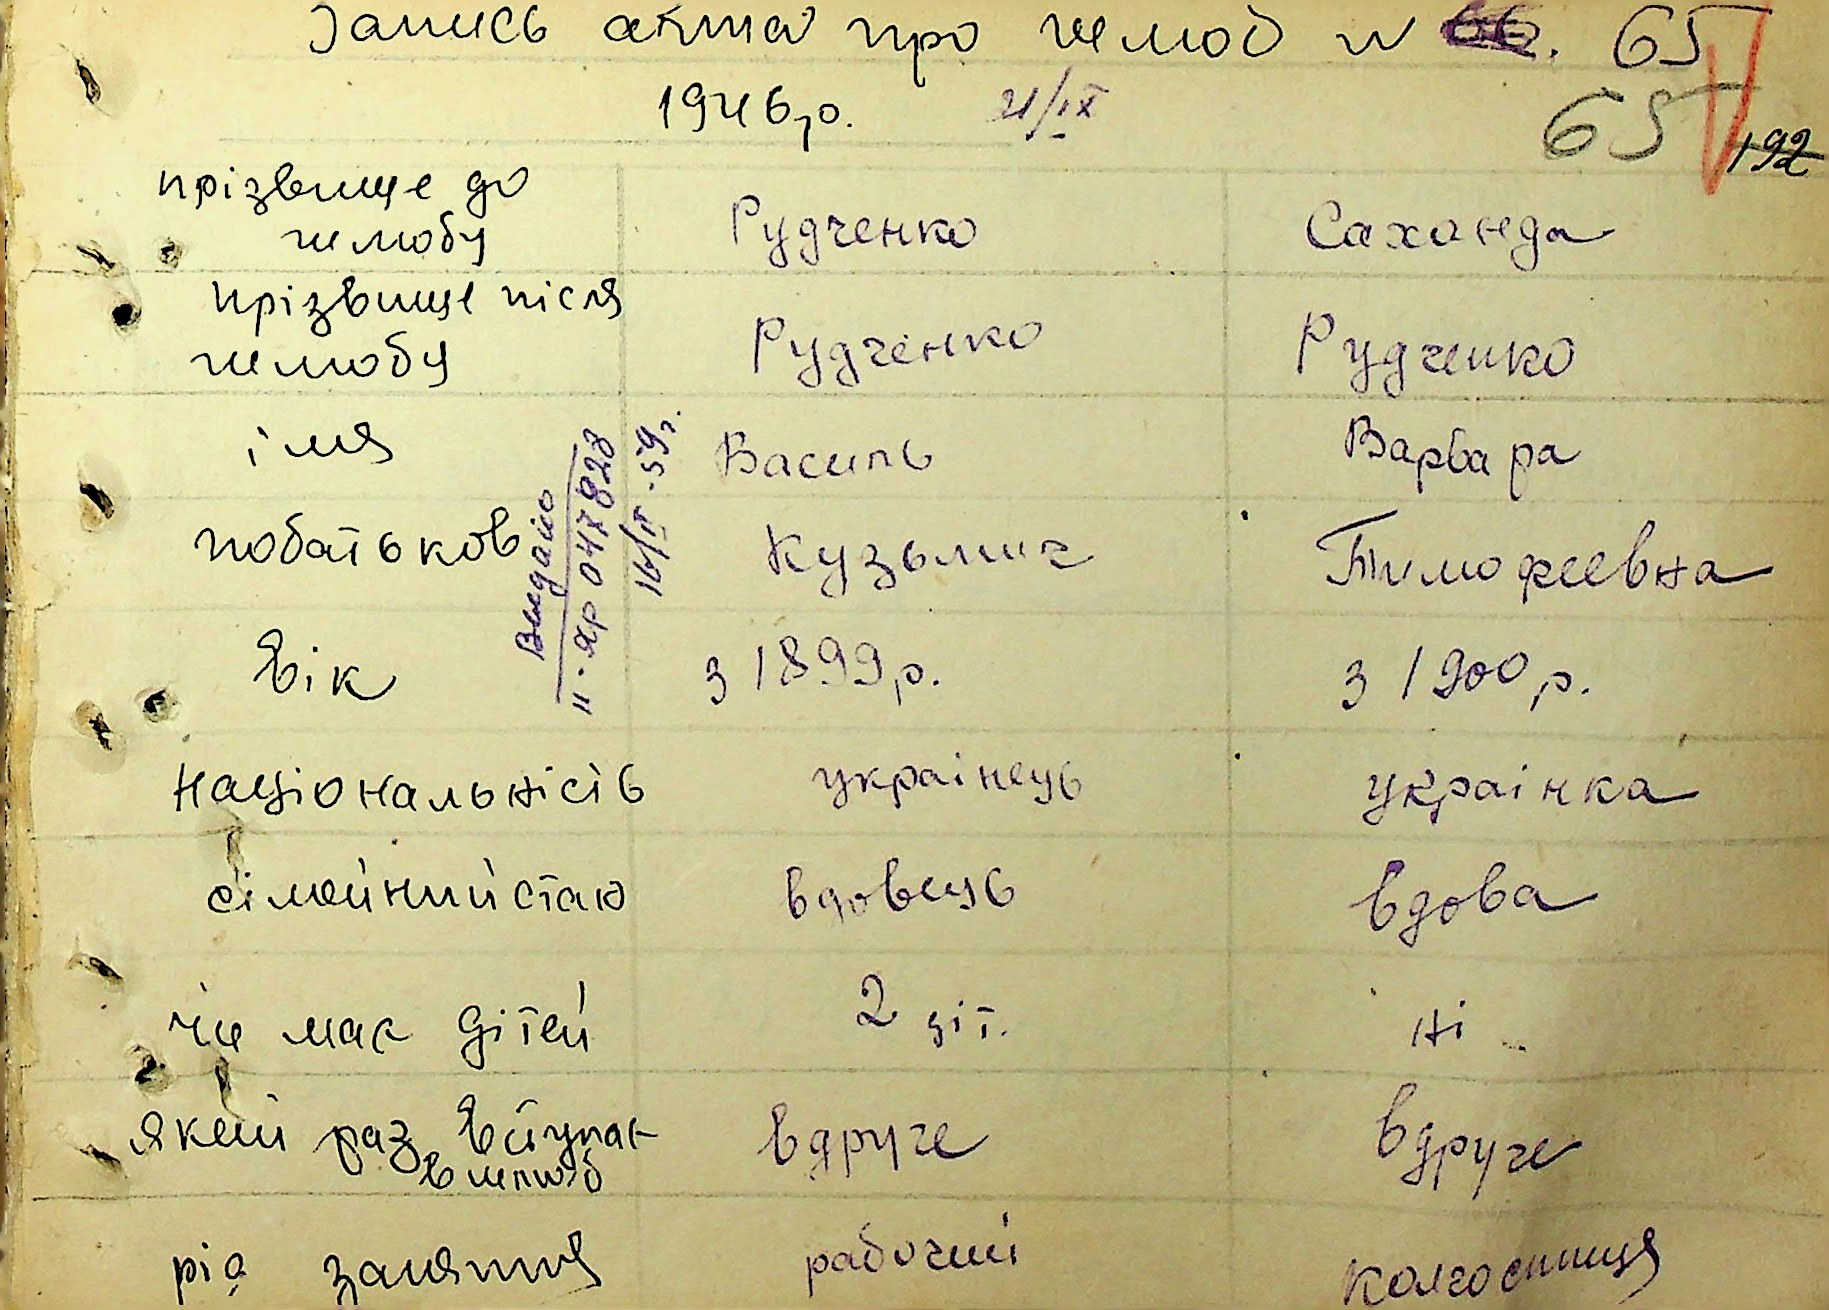 Запись акта про шлюб N 66. 65
1946 р. 21/IX 65
192
прізвище до
шлюбу Рудченко Саханда
прізвище після
шлюбу Рудченко Рудченко
імя Василь Варвара
побатьков Кузьмич Тимофеевна
Выдано
II-ЯР 047823
16/IV-59г.
вік з 1899 р. з 1900 р.
національність украінець украінка
сімейний стан вдовець вдова
чи має дітей 2 діт. ні
який раз вступає
в шлюб вдруге вдруге
рід заняття рабочий колгоспниця